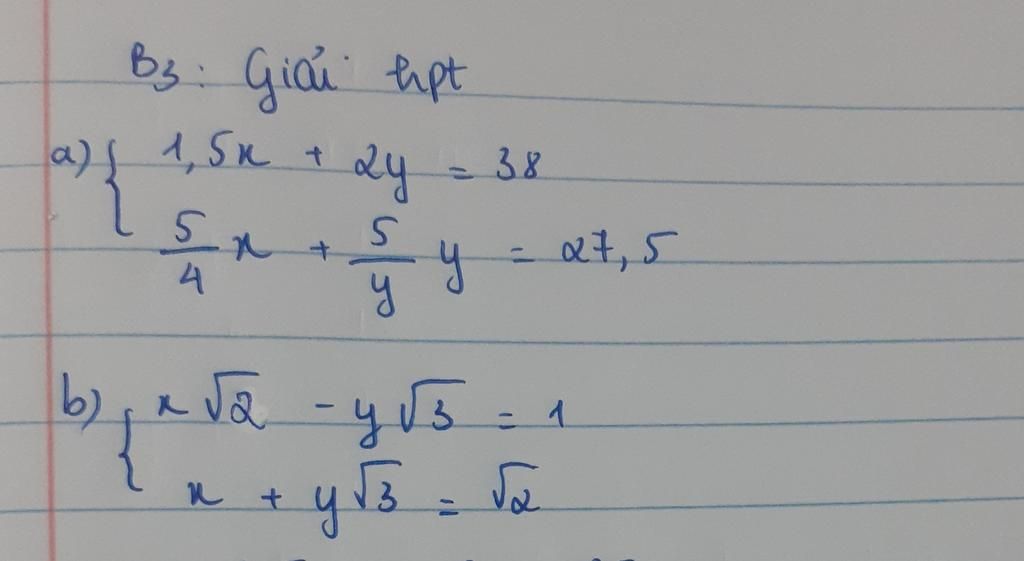 B3: Giải hpt
a) { 1,5x + 2y = 38
5/4 x + 5/y y = 27,5
b) { x√2 - y√3 = 1
x + y√3 = √2